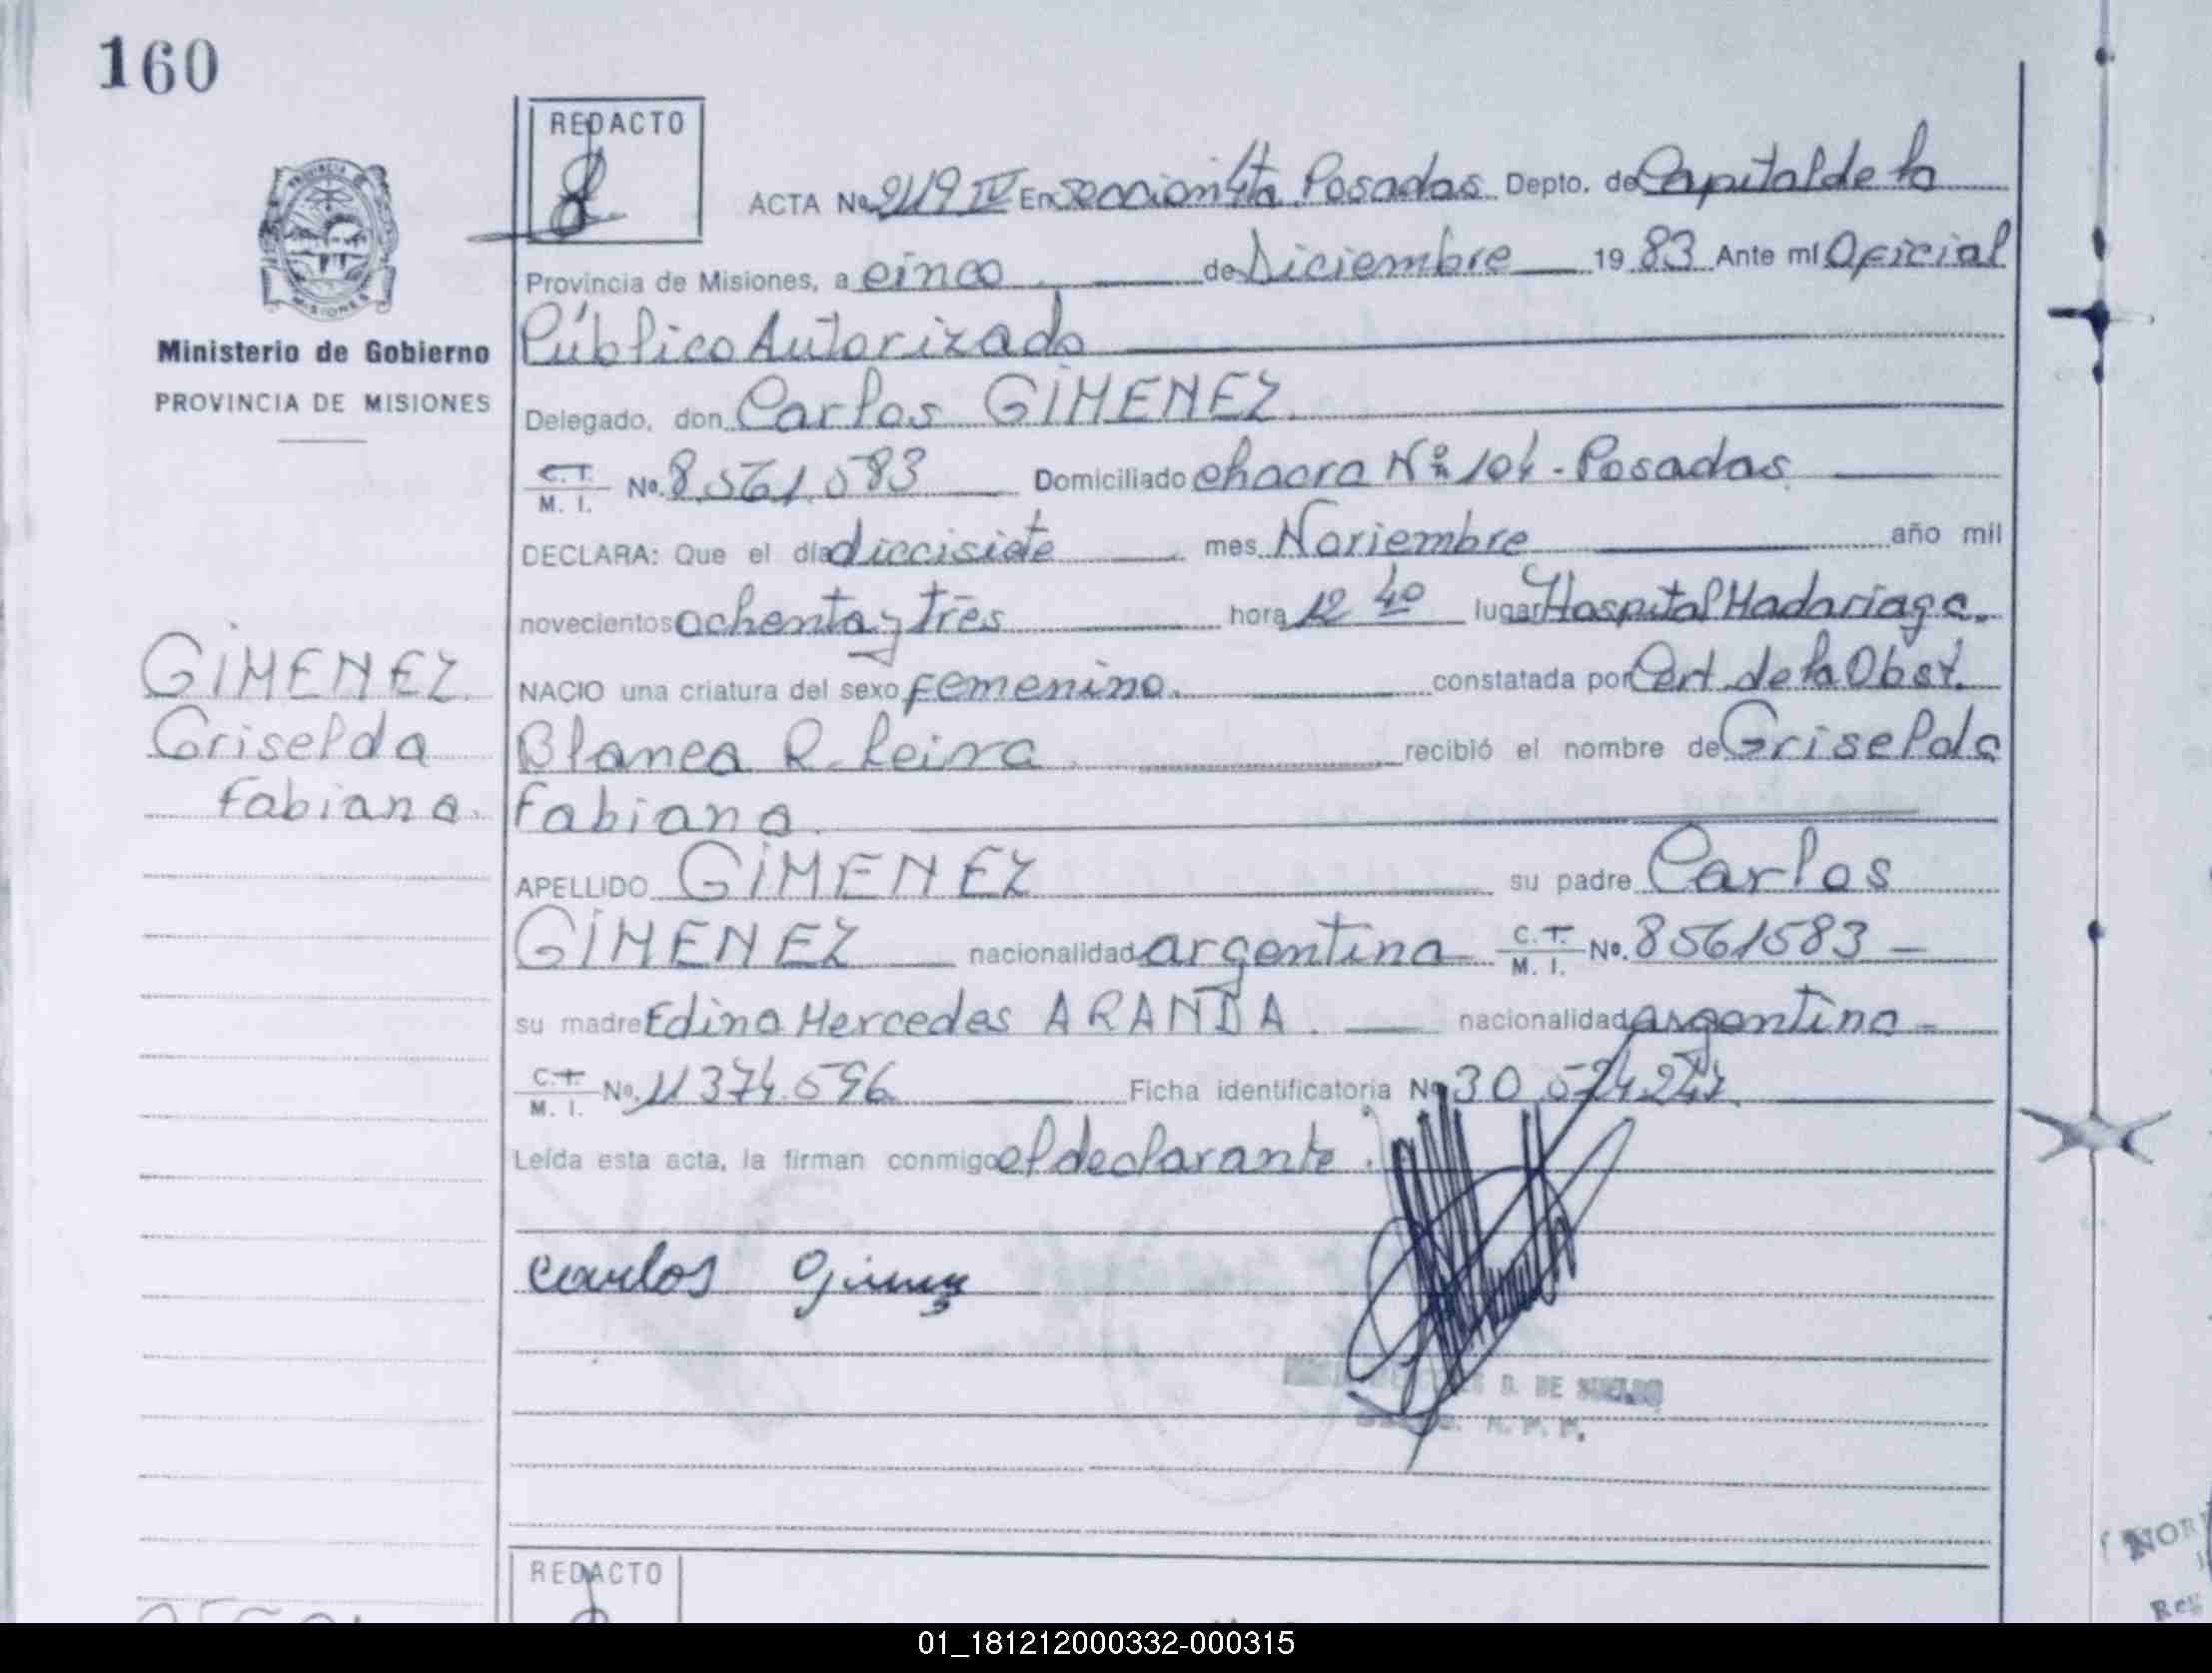 160
REDACTO
ACTA No 2119 IV En sección 4ta Posadas Depto. de Capital de la
Provincia de Misiones, a cinco de Diciembre 1983 Ante mí Oficial
Ministerio de Gobierno
PROVINCIA DE MISIONES
Público Autorizado
Delegado, don Carlos GIMENEZ
C.I. M. I. No. 8.561.583 Domiciliado chacra Nº 104 - Posadas
DECLARA: Que el día diecisiete mes Noviembre año mil
novecientos ochenta y tres hora 12 40 lugar Hospital Madariaga.
NACIO una criatura del sexo femenino. constatada por Cert. de la Obst.
Blanca R. Leiva recibió el nombre de Griselda
Fabiana.
GIMENEZ
Griselda
Fabiana.
APELLIDO GIMENEZ su padre Carlos
GIMENEZ nacionalidad argentina C.I. M. I. No. 8561583 -
su madre Edina Mercedes ARANDA. nacionalidad argentina -
C.I. M. I. No. 11.374.596 Ficha identificatoria No 30.574.247
Leída esta acta, la firman conmigo el declarante.
Carlos Gimenez
B. DE
REDACTO
01_181212000332-000315